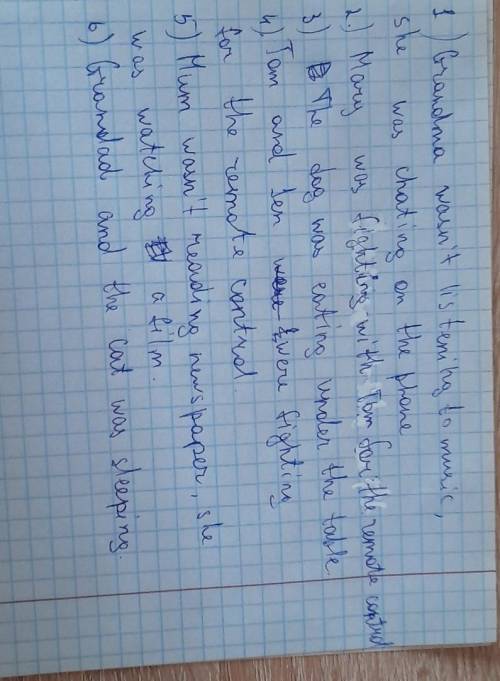 1) Grandma wasn't listening to music,
she was chating on the phone
2.) Mary was fighting with Tom for the remote control
3) The dog was eating under the table.
4) Tom and Len were fighting
for the remote control.
5) Mum wasn't reading newspaper, she
was watching a film.
6) Grandad and the cat was sleeping.